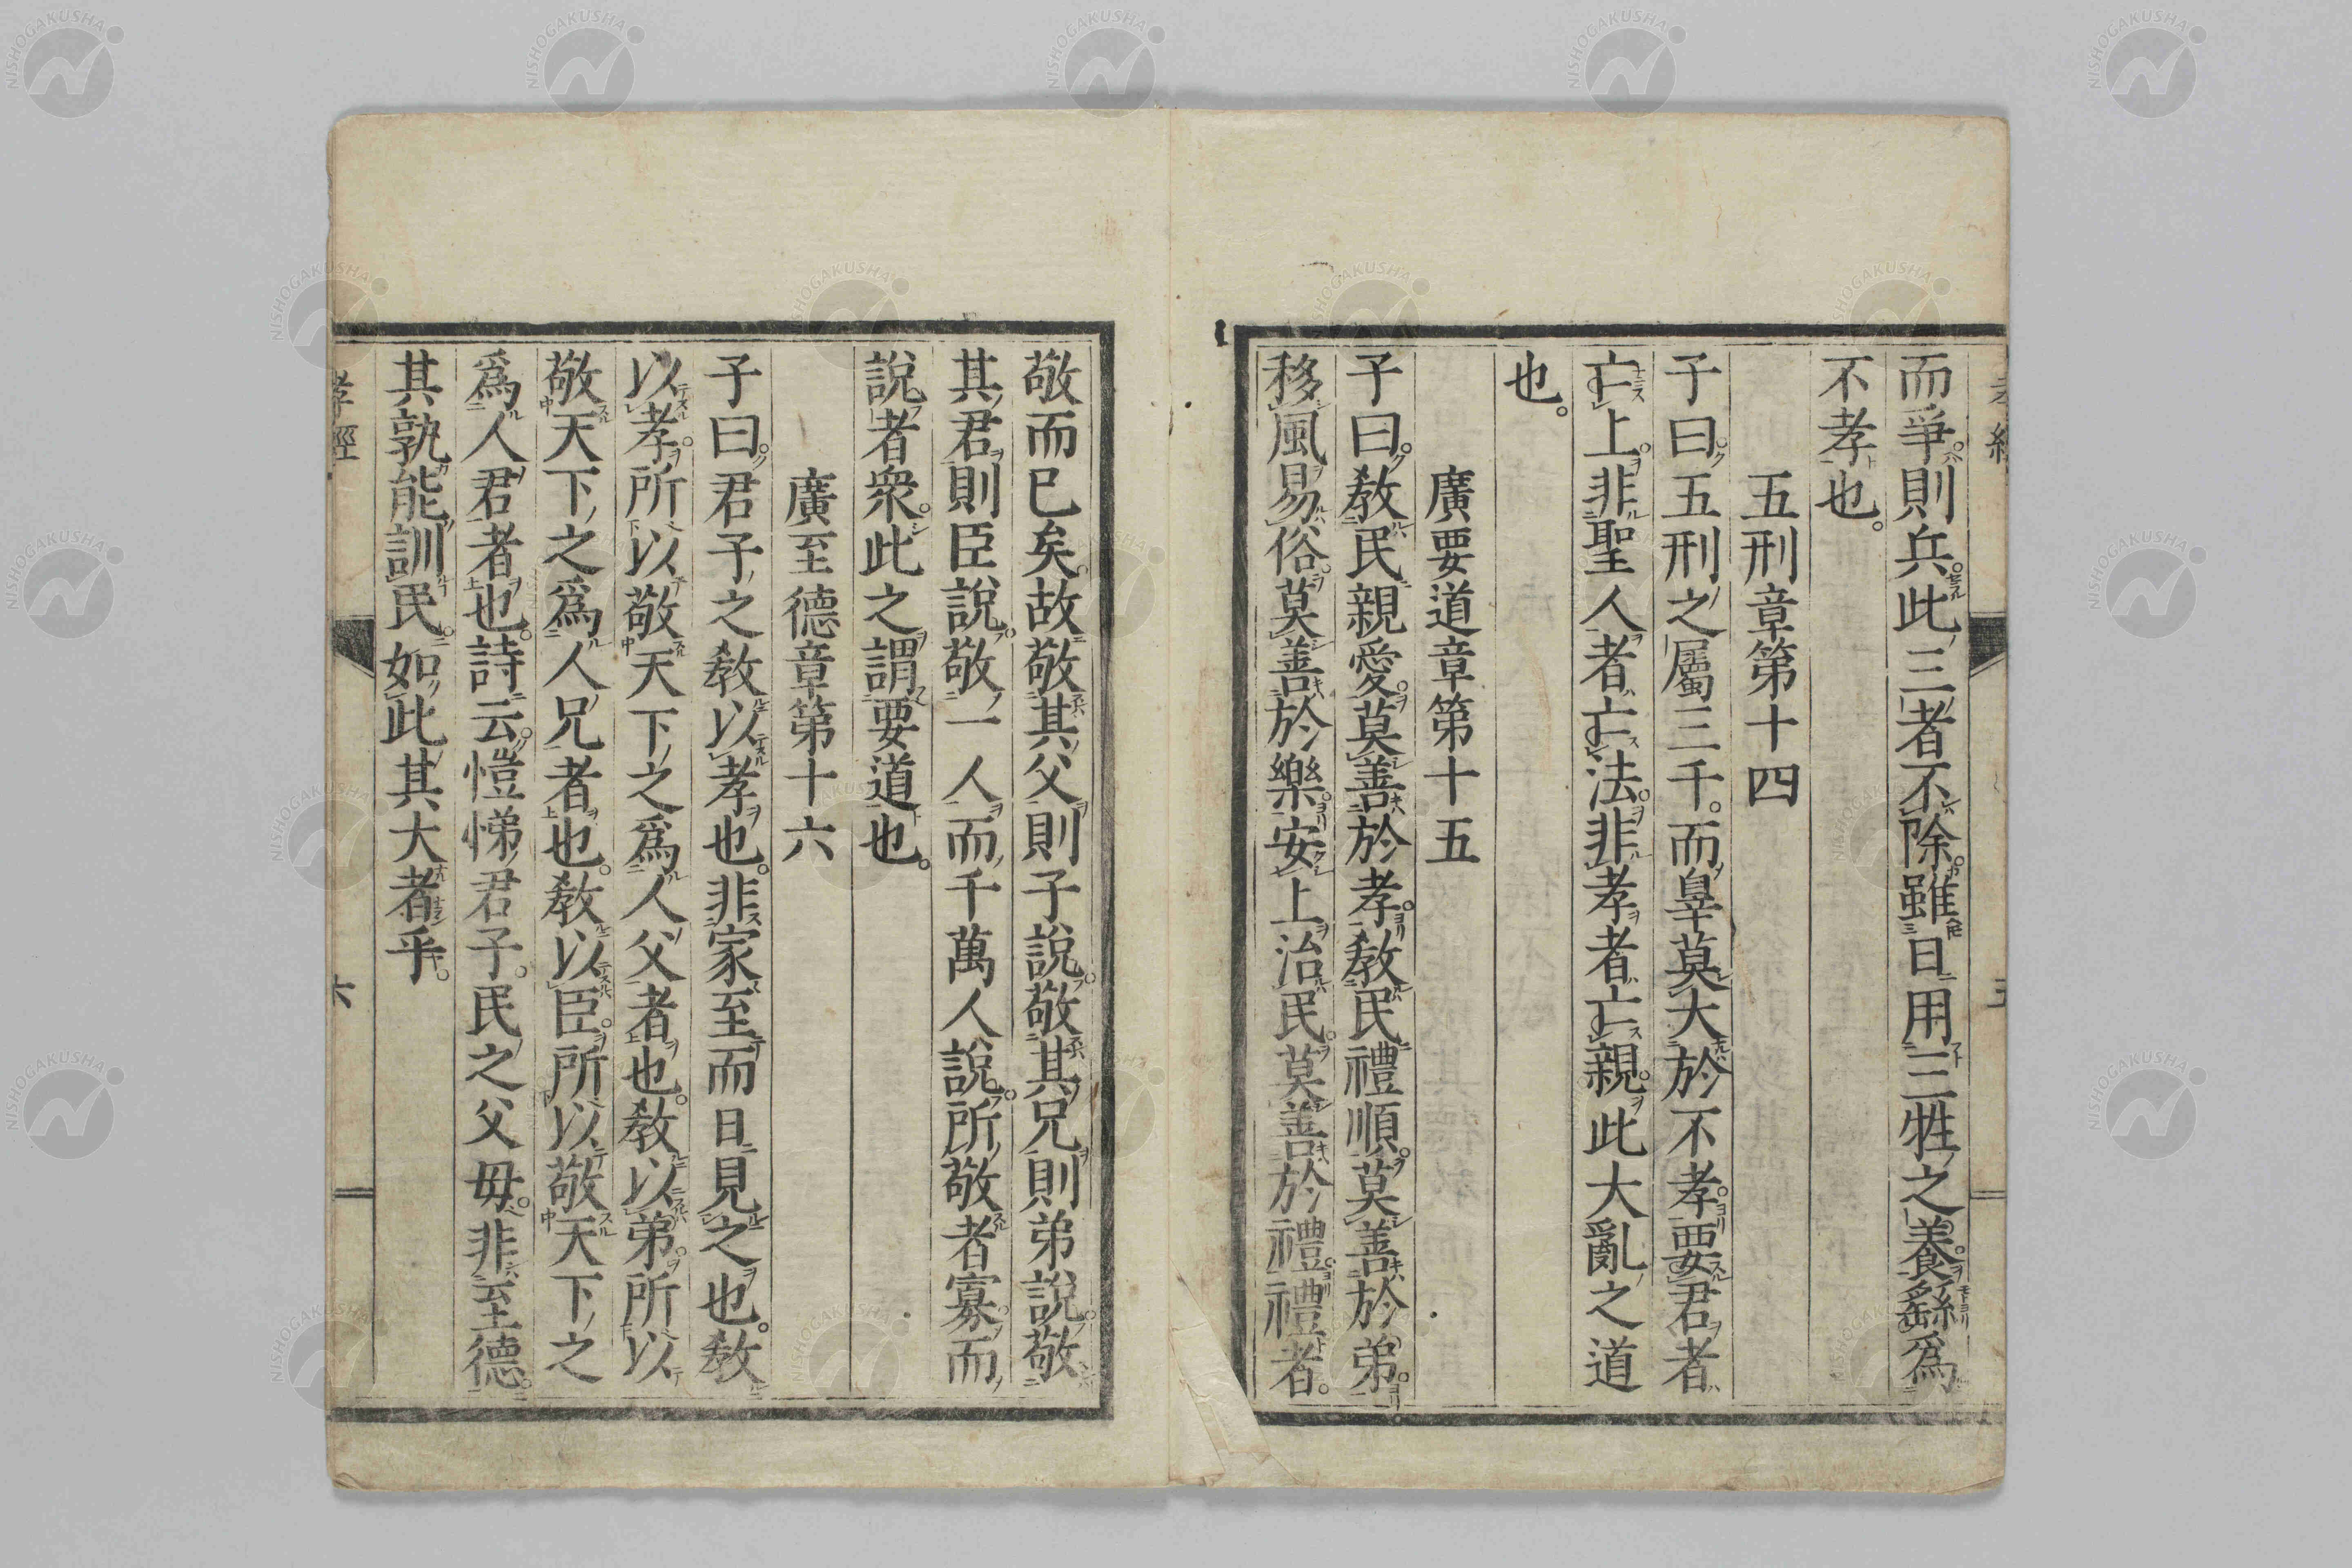 而爭則兵此三者不除雖日用三牲之養繇爲
不孝也。
五刑章第十四
子曰五刑之屬三千。而辠莫大於不孝要君者
亡上非聖人者亡法非孝者亡親此大亂之道
也。
廣要道章第十五
子曰教民親愛莫善於孝教民禮順莫善於弟
移風易俗莫善於樂安上治民莫善於禮禮者。
敬而已矣故敬其父則子說敬其兄則弟說敬
其君則臣說敬一人而千萬人說所敬者寡而
說者衆此之謂要道也。
廣至德章第十六
子曰君子之教以孝也。非家至而日見之也。教
以孝所以敬天下之爲人父者也。教以弟所以
敬天下之爲人兄者也。教以臣所以敬天下之
爲人君者也。詩云愷悌君子。民之父母。非至德
其孰能訓民如此其大者乎。
孝經
六
NISHOGAKUSHA